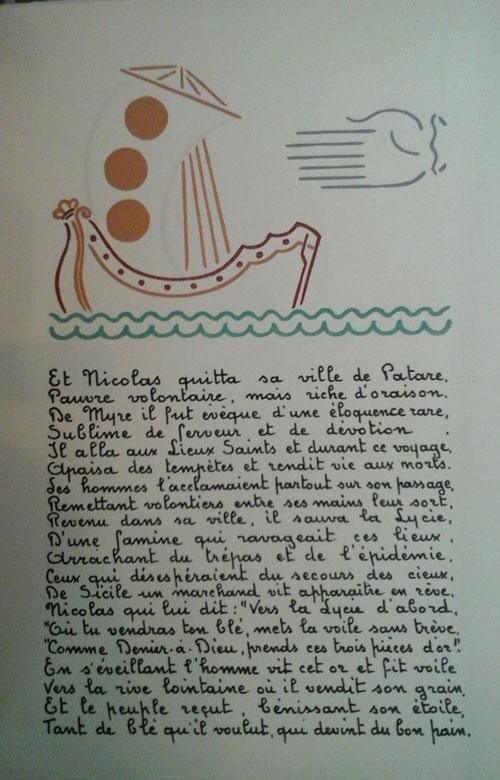 Et Nicolas quitta sa ville de Patare,
Pauvre volontaire, mais riche d'oraison.
De Myre il fut evèque d'une éloquence rare,
Sublime de ferveur et de dévotion .
Il alla aux Lieux Saints et durant ce voyage,
Apaisa des tempêtes et rendit vie aux morts.
Les hommes l'acclamaient partout sur son passage,
Remettant volontiers entre ses mains leur sort.
Revenu dans sa ville, il sauva la Lycie,
D'une famine qui ravageait ces lieux,
Arrachant du trépas et de l'épidémie,
Ceux qui désespéraient du secours des cieux.
De Sicile un marchand vit apparaître en rêve,
Nicolas qui lui dit: "Vers la Lycie d'abord,
"Où tu vendras ton blé, mets la voile sans trêve,
"Comme Denier-à-Dieu, prends ces trois pièces d'or".
En s'éveillant l'homme vit cet or et fit voile
Vers la rive lointaine où il vendit son grain,
Et le peuple reçut, bénissant son étoile,
Tant de blé qu'il voulut, qui devint du bon pain.